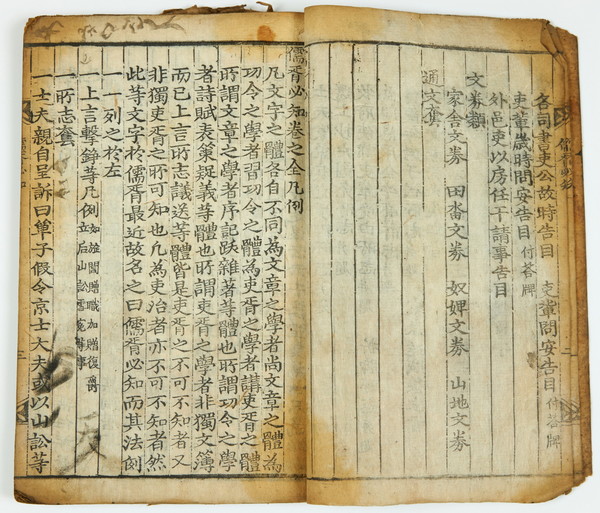 各司書吏公故時告目 吏輩問安告目 付答牌
吏輩歲時問安告目 付答牌
外邑吏以房任干請事告目
文券類
家舍文券 田畓文券 奴婢文券 山地文券
通文套
儒胥必知卷之全凡例
凡文字之體各自不同爲文章之學者尚文章之體爲
功令之學者習功令之體爲吏胥之學者講吏胥之體
所謂文章之學者序記跋雜著等體也所謂功令之學
者詩賦表策疑義等體也所謂吏胥之學者非獨文簿
而已上言所志議送等體皆是吏胥之不可不知者又
非獨吏胥之所可知也凡爲吏治者亦不可不知者然
此等文字於儒胥最近故名之曰儒胥必知而其法例
一一列之於左
一上言擊錚等凡例 如旌閭贈職加贈復爵
立后山訟雪冤等事
一所志套
一士夫親自呈訴曰單子假令京士大夫或以山訟等